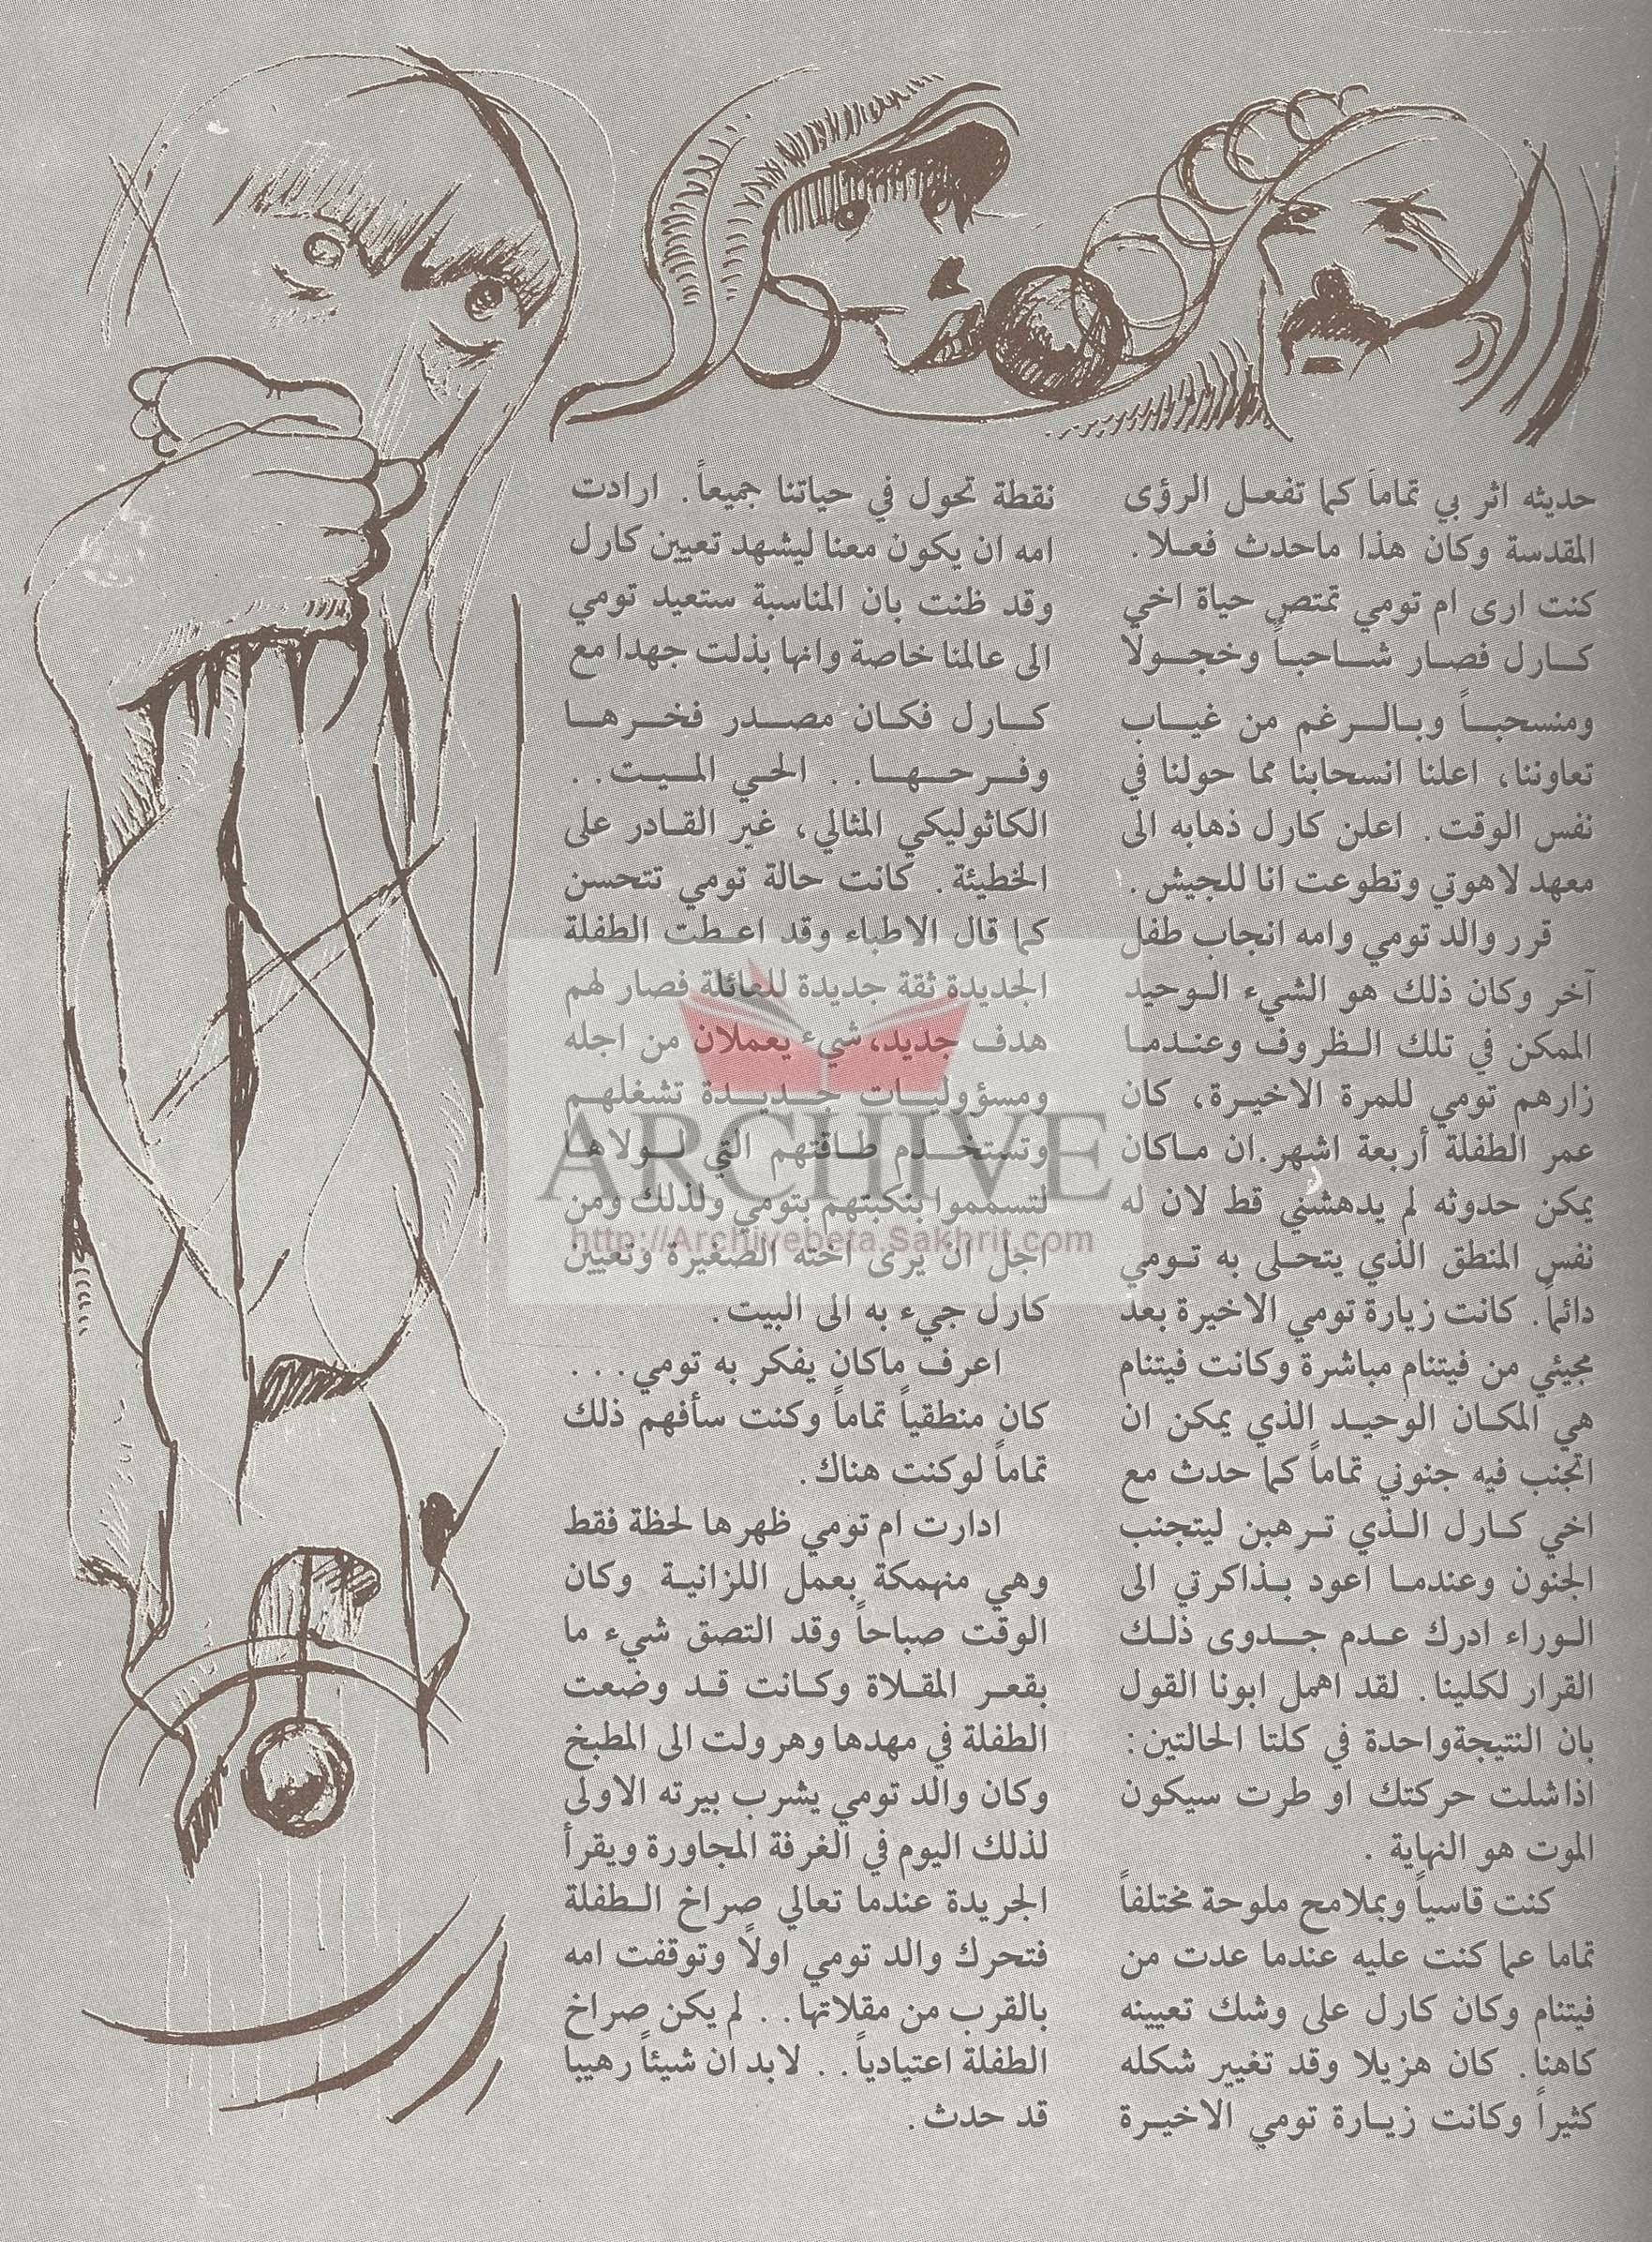 حديثه اثر بي تماماً كما تفعل الرؤى
المقدسة وكان هذا ماحدث فعلا.
كنت ارى ام تومي تمتص حياة اخي
كارل فصار شاحباً وخجولاً
ومنسحباً وبالرغم من غياب
تعاوننا، اعلنا انسحابنا مما حولنا في
نفس الوقت. اعلن كارل ذهابه الى
معهد لاهوتي وتطوعت انا للجيش.
قرر والد تومي وامه انجاب طفل
آخر وكان ذلك هو الشيء الوحيد
الممكن في تلك الظروف وعندما
زارهم تومي للمرة الاخيرة، كان
عمر الطفلة أربعة اشهر. ان ماكان
يمكن حدوثه لم يدهشني قط لان له
نفس المنطق الذي يتحلى به تومي
دائماً. كانت زيارة تومي الاخيرة بعد
مجيئي من فيتنام مباشرة وكانت فيتنام
هي المكان الوحيد الذي يمكن ان
اتجنب فيه جنوني تماماً كما حدث مع
اخي كارل الذي ترهبن ليتجنب
الجنون وعندما اعود بذاكرتي الى
الوراء ادرك عدم جدوى ذلك
القرار لكلينا. لقد اهمل ابونا القول
بان النتيجة واحدة في كلتا الحالتين:
اذا شلت حركتك او طرت سيكون
الموت هو النهاية .
كنت قاسياً وبملامح ملوحة مختلفاً
تماما عما كنت عليه عندما عدت من
فيتنام وكان كارل على وشك تعيينه
كاهنا. كان هزيلا وقد تغيير شكله
كثيراً وكانت زيارة تومي الاخيرة
نقطة تحول في حياتنا جميعاً. ارادت
امه ان يكون معنا ليشهد تعيين كارل
وقد ظنت بان المناسبة ستعيد تومي
الى عالمنا خاصة وانها بذلت جهدا مع
كارل فكان مصدر فخرها
وفرحها.. الحي الميت..
الكاثوليكي المثالي، غير القادر على
الخطيئة. كانت حالة تومي تتحسن
كما قال الاطباء وقد اعطت الطفلة
الجديدة ثقة جديدة للعائلة فصار لهم
هدف جديد، شيء يعملان من اجله
ومسؤوليات جديدة تشغلهم
وتستخدم طاقتهم التي لولاها
لتسمموا بنكبتهم بتومي ولذلك ومن
اجل ان يرى اخته الصغيرة وتعيين
كارل جيء به الى البيت.
اعرف ماكان يفكر به تومي...
كان منطقياً تماماً وكنت سأفهم ذلك
تماماً لوكنت هناك.
ادارت ام تومي ظهرها لحظة فقط
وهي منهمكة بعمل اللزانية وكان
الوقت صباحاً وقد التصق شيء ما
بقعر المقلاة وكانت قد وضعت
الطفلة في مهدها وهرولت الى المطبخ
وكان والد تومي يشرب بيرته الاولى
لذلك اليوم في الغرفة المجاورة ويقرأ
الجريدة عندما تعالي صراخ الطفلة
فتحرك والد تومي اولاً وتوقفت امه
بالقرب من مقلاتها.. لم يكن صراخ
الطفلة اعتيادياً.. لابد ان شيئاً رهيبا
قد حدث.
ARCHIVE
http://Archivebeta.Sakhrit.com